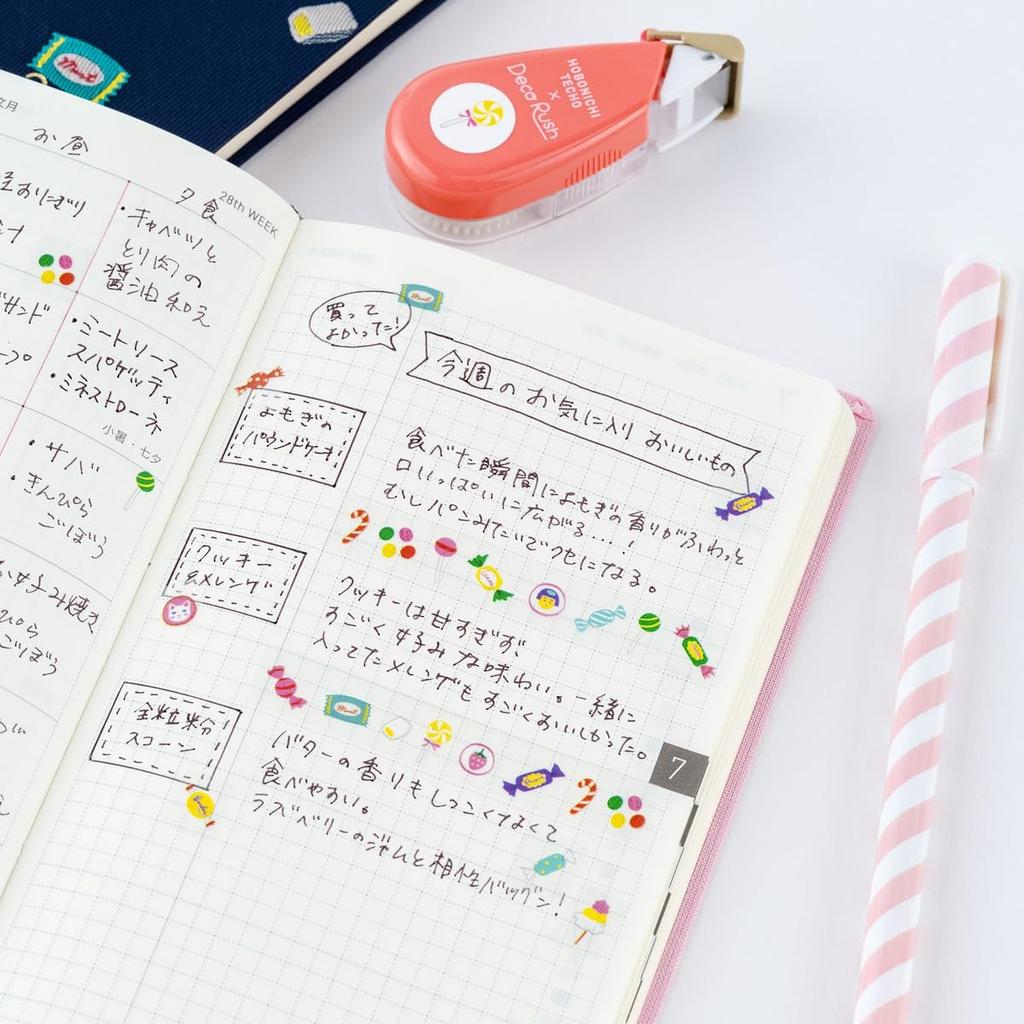 Mint
HOBONICHI
TECHO
×
Deco Rush
文月
お昼
夕食
28th WEEK
おにぎり
・キャベツと
とり肉の
醤油和え
サンド
・ミートソース
スパゲッティ
・ミネストローネ
小暑・七夕
・サバ
・きんぴら
ごぼう
お好み焼き
ごぼう
買って
よかった!
Mint
今週のお気に入りおいしいもの
よもぎの
パウンドケーキ
食べた瞬間によもぎの香りがふわっと
口いっぱいに広がる……!
むしパンみたいでクセになる。
クッキー
&メレンゲ
クッキーは甘すぎず
すごく好みな味わい。一緒に
入ってたメレンゲもすごくおいしかった。
Mint
7
全粒粉
スコーン
バターの香りもしつこくなくて
食べやすい。
ラズベリーのジャムと相性バツグン!